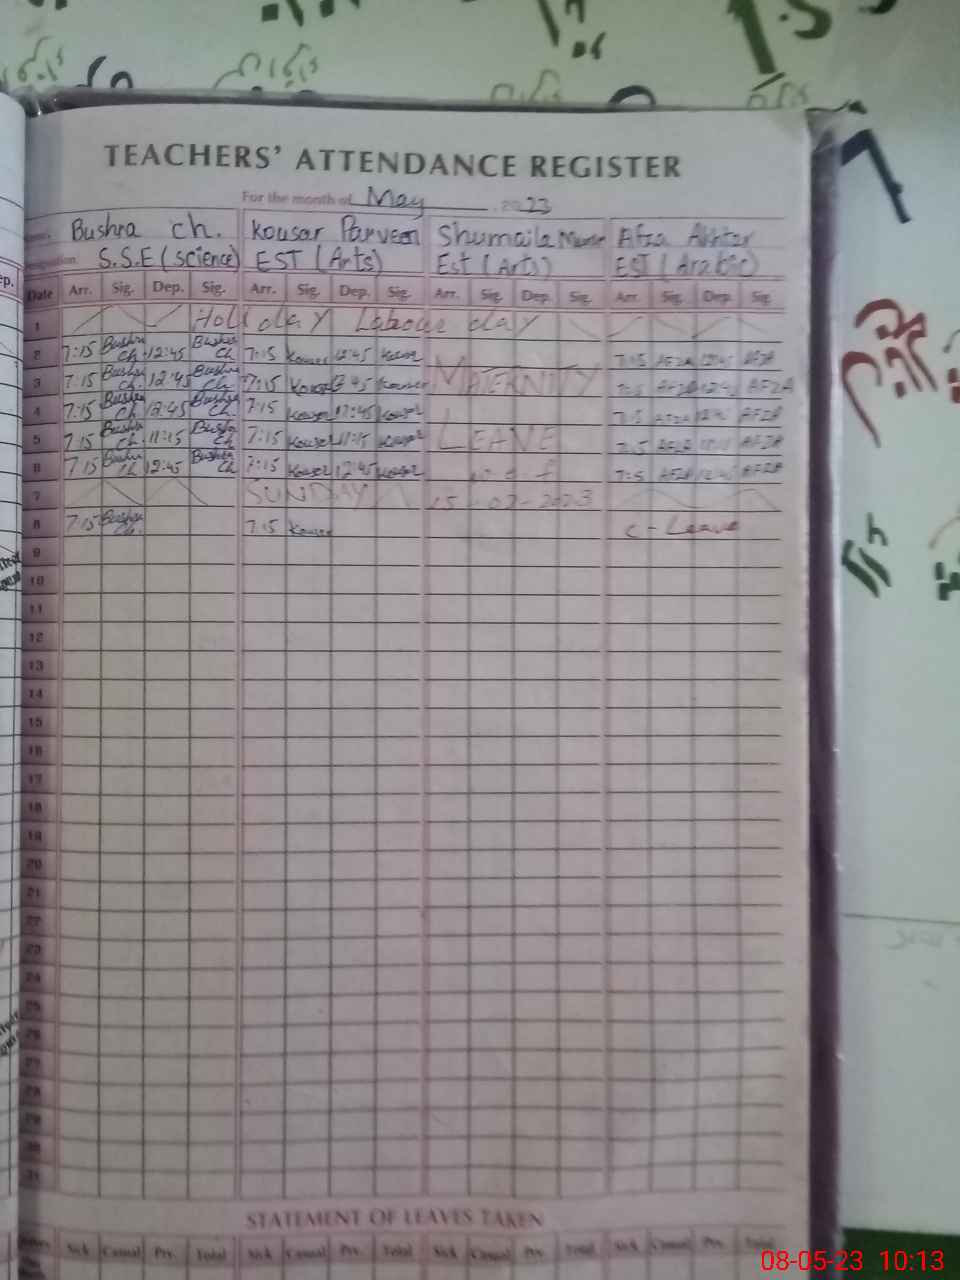 TEACHERS' ATTENDANCE REGISTER
For the month of May 2023
Bushra ch. Kousar Parveen Shumaila Afza Akhtar
S.S.E (Science) EST (Arts) Est (Arts) EST (Arabic)
Date Arr. Sig. Dep. Sig. Arr. Sig. Dep. Sig. Arr. Sig. Dep. Sig. Arr. Sig. Dep. Sig.
1 Holi day Labour day
2 7:15 Bushra Ch. 12:45 Bushra Ch. 7:15 Kousar 12:45 Kousar 7:15 AFZA 12:45 AFZA
3 7:15 Bushra Ch. 12:45 Bushra Ch. 7:15 Kousar 12:45 Kousar MATERNITY 7:15 AFZA 12:45 AFZA
4 7:15 Bushra Ch. 12:45 Bushra Ch. 7:15 Kousar 12:45 Kousar 7:15 AFZA 12:45 AFZA
5 7:15 Bushra Ch. 11:15 Bushra Ch. 7:15 Kousar 11:15 Kousar LEAVE AFZA AFZA
6 7:15 Bushra Ch. 12:45 Bushra Ch. 7:15 Kousar 12:45 Kousar w.e.f AFZA 12:45 AFZA
7 SUNDAY 15-02-2023
8 7:15 Bushra Ch. 7:15 Kousar C-Leave
9
10
11
12
13
14
15
16
17
18
19
20
21
22
23
24
25
26
27
28
29
30
31
STATEMENT OF LEAVES TAKEN
Sick Casual Prv. Total Sick Casual Prv. Total Sick Casual Prv. Total Sick Casual Prv. Total
08-05-23 10:13